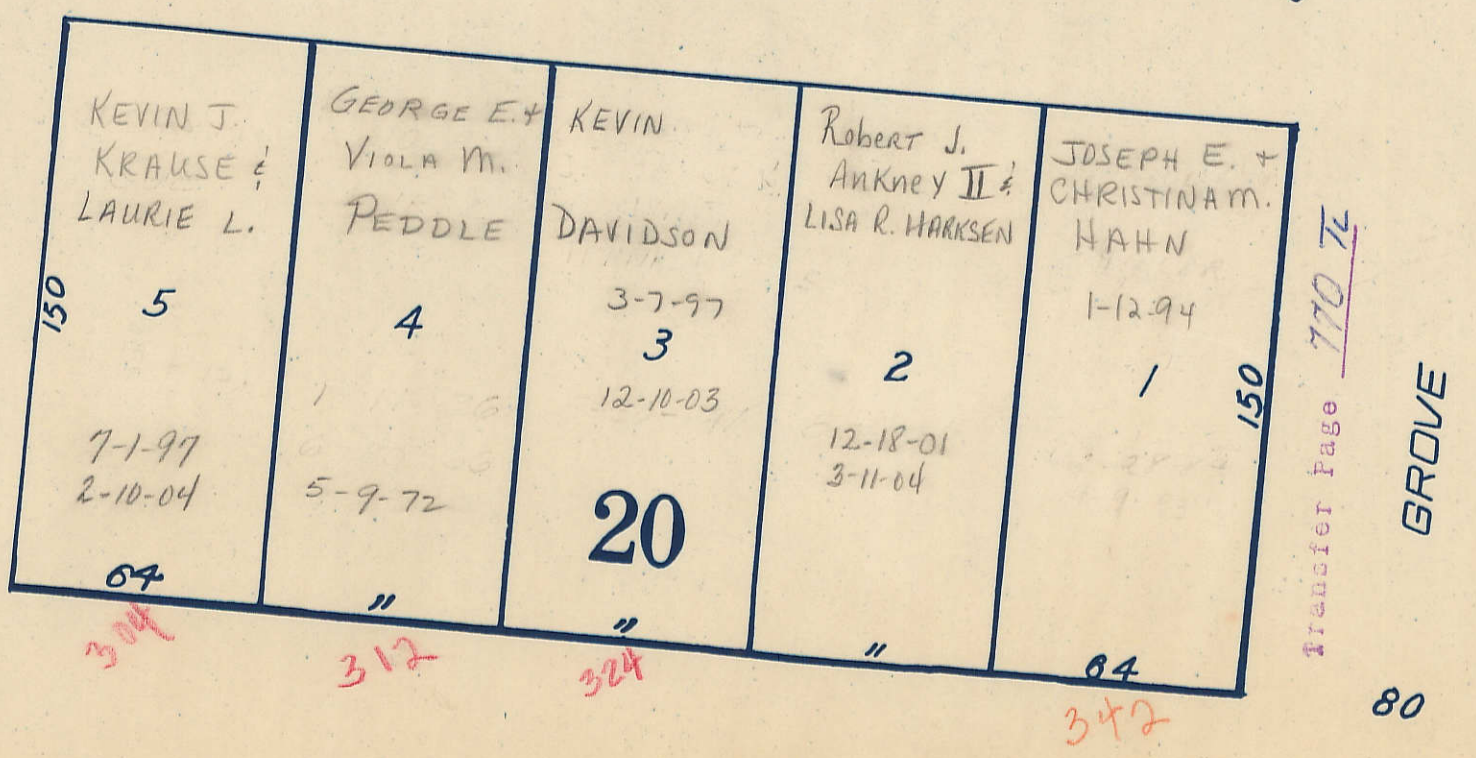 KEVIN J.
KRAUSE &
LAURIE L.
150
5
7-1-97
2-10-04
64
304
GEORGE E. +
VIOLA M.
PEDDLE
4
5-9-72
"
312
KEVIN
DAVIDSON
3-7-97
3
12-10-03
20
"
324
Robert J.
AnKney II &
LISA R. HARKSEN
2
12-18-01
3-11-04
"
JOSEPH E. +
CHRISTINA M.
HAHN
1-12-94
1
150
64
342
Transfer Page 770
GROVE
80